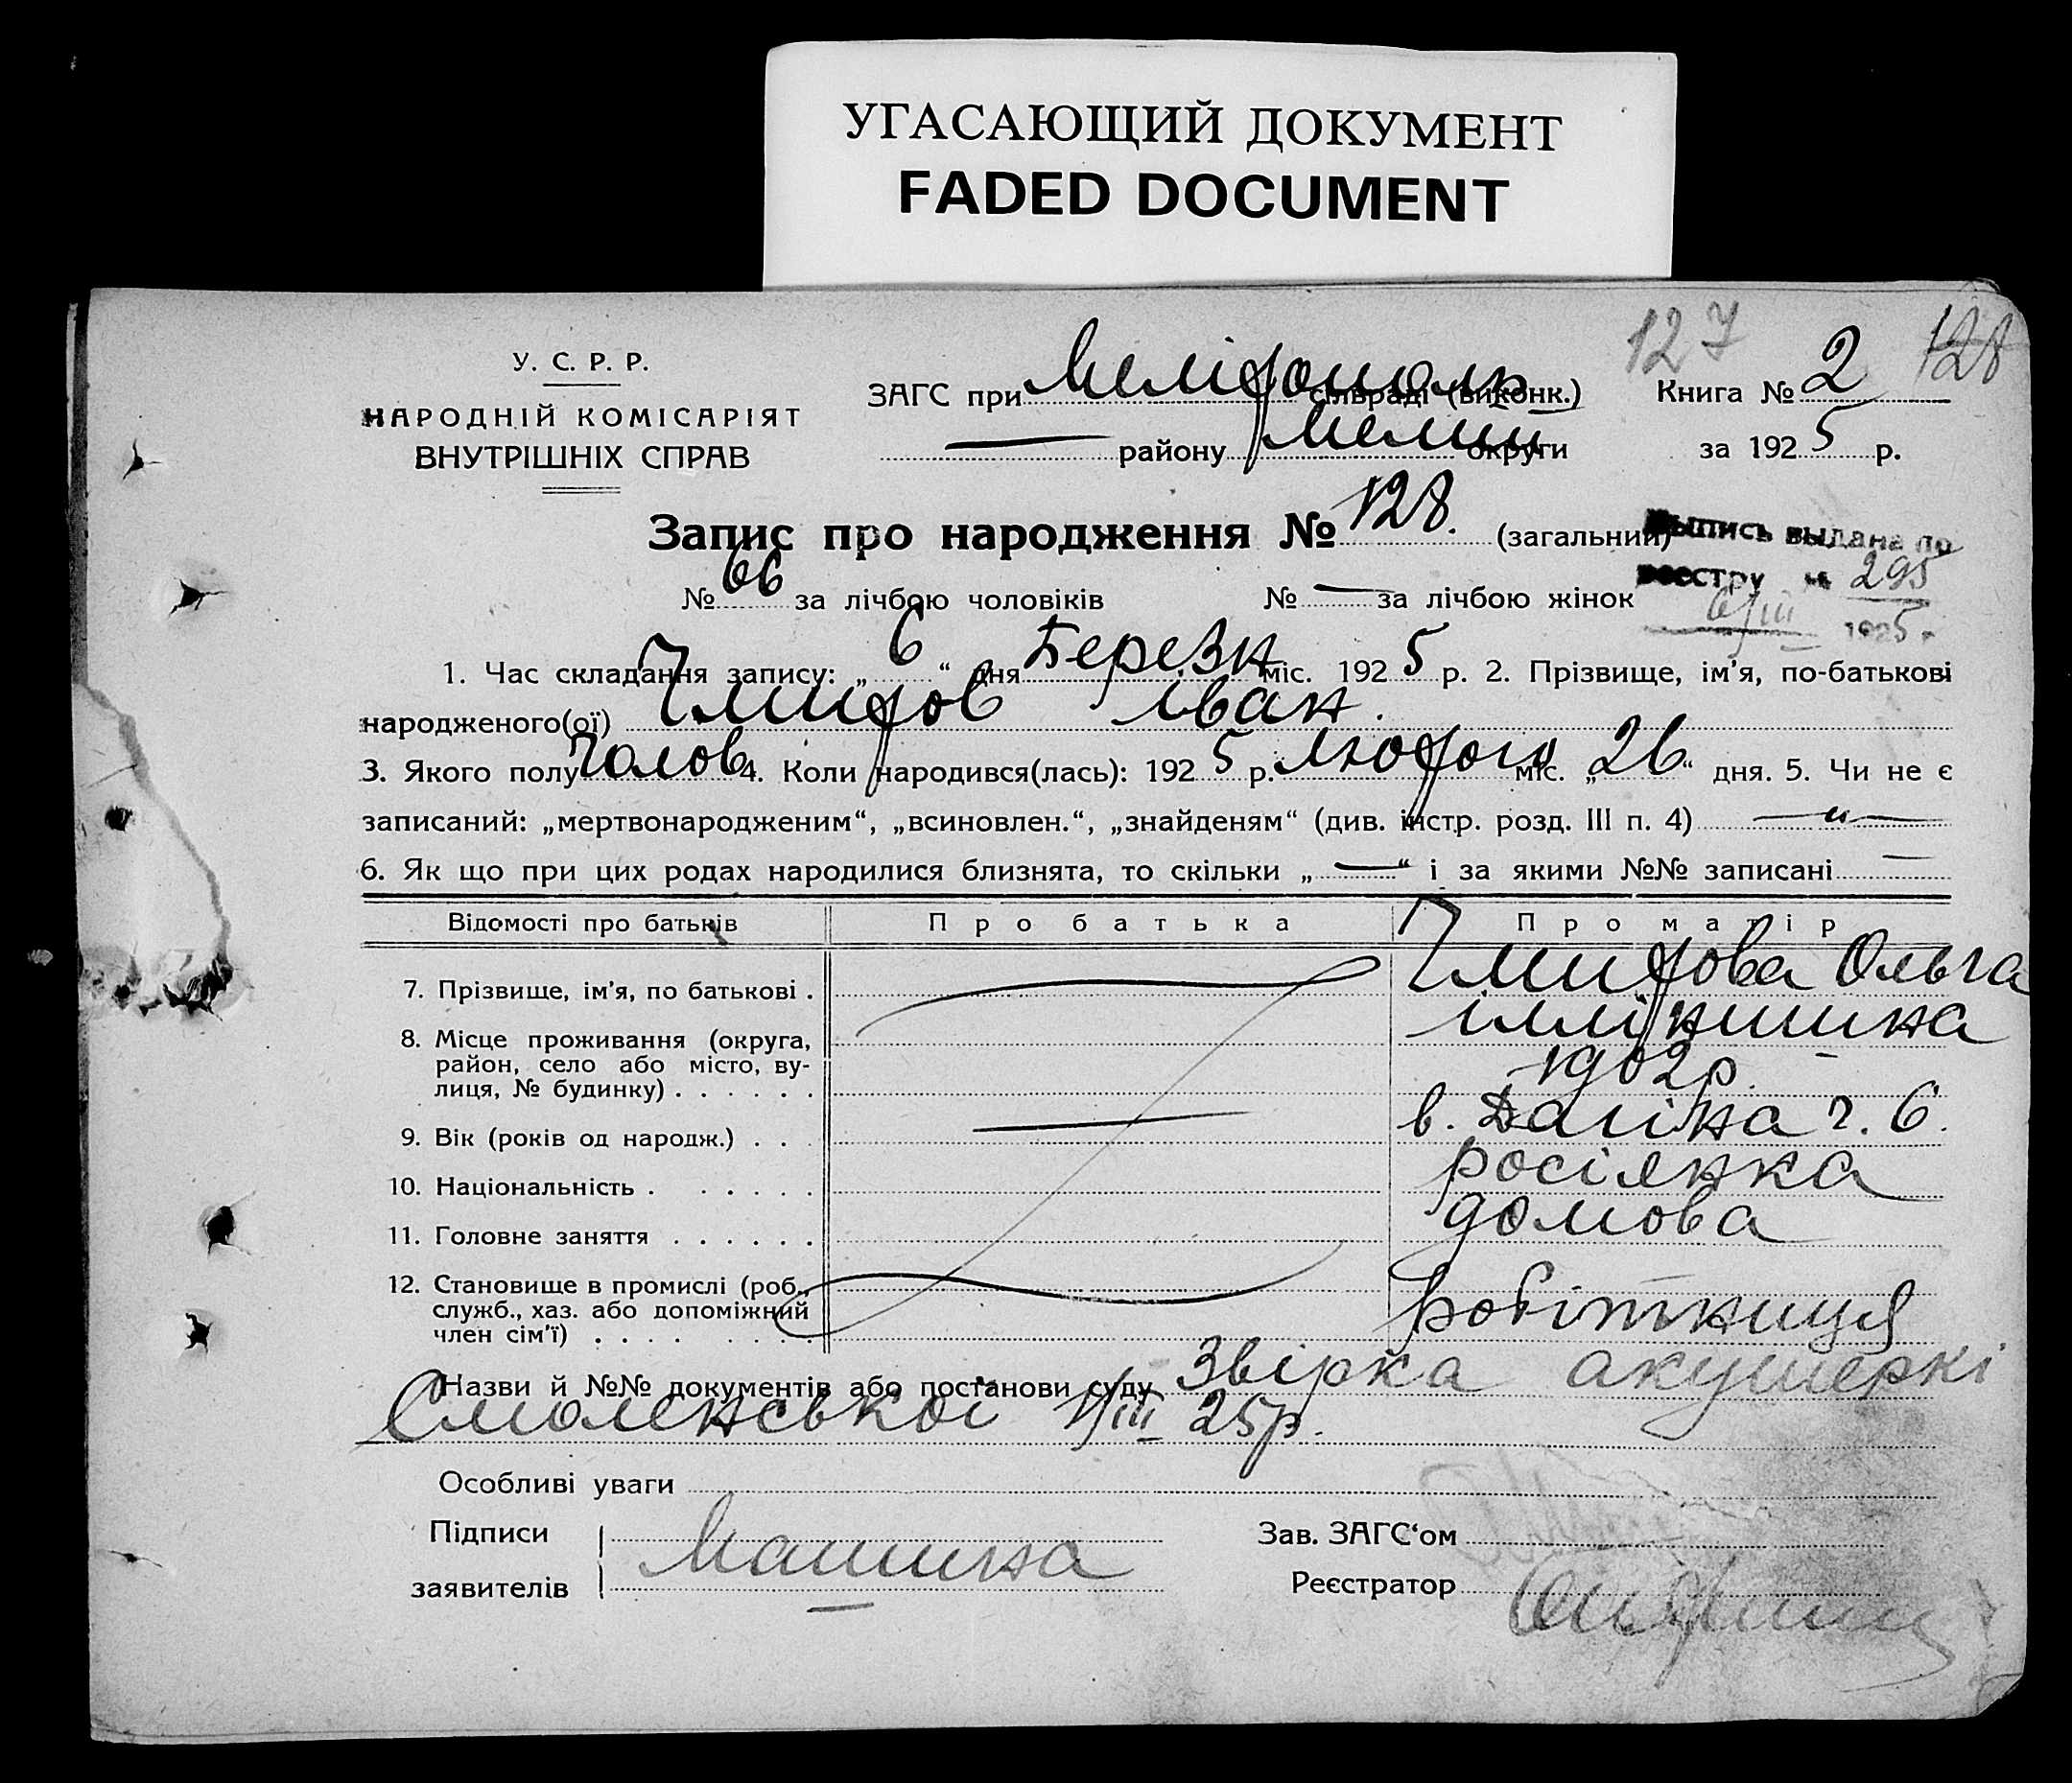 УГАСАЮЩИЙ ДОКУМЕНТ
FADED DOCUMENT
127 128
У. С. Р. Р.
НАРОДНІЙ КОМІСАРІЯТ
ВНУТРІШНІХ СПРАВ
ЗАГС при Мелітополь сільраді (виконк.) Книга № 2
— району Мелит округи за 1925 р.
Запис про народження № 128. (загальний)
Выпись выдана по
реестру № 295
6/III 1925 г.
№ 66 за лічбою чоловіків № — за лічбою жінок
1. Час складання запису: „ 6 “ дня Березн міс. 1925 р. 2. Прізвище, ім'я, по-батькові
народженого(ої) Іван.
3. Якого полу чолов 4. Коли народився(лась): 1925 р. лютого міс. „ 26 “ дня. 5. Чи не є
записаний: „мертвонародженим“, „всиновлен.“, „знайденям“ (див. інстр. розд. III п. 4) — „ —
6. Як що при цих родах народилися близнята, то скільки „ — “ і за якими №№ записані —
Відомості про батьків Про батька Про матір
7. Прізвище, ім'я, по батькові . Ольга
8. Місце проживання (округа,
район, село або місто, ву-
лиця, № будинку) . . . . . . 1902р.
9. Вік (років од народж.) . . . — в. ч. 6.
10. Національність . . . . . . росіянка
11. Головне заняття . . . . . . домова
12. Становище в промислі (роб.,
служб., хаз. або допоміжний
член сім'ї) . . . . . . . . робітниця
Назви й №№ документів або постанови суду Звірка акушеркі
Смоленської 1/III 25р.
Особливі уваги
Підписи Зав. ЗАГС‘ом
заявителів Машина Реєстратор